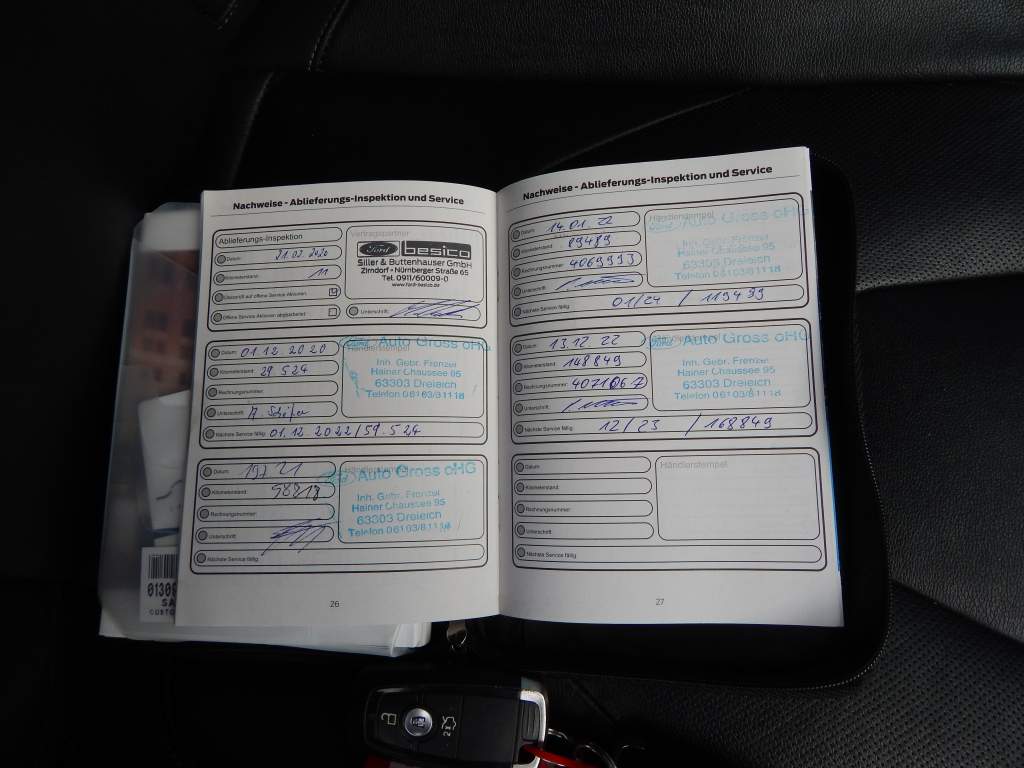 Nachweise - Ablieferungs-Inspektion und Service
Ablieferungs-Inspektion
Datum:
Kilometerstand: 11
Überprüft auf offene Service Aktionen
Offene Service Aktionen abgearbeitet
Vertragspartner
Ford besico
Siller & Buttenhauser GmbH
Zirndorf - Nürnberger Straße 65
Tel. 0911/60009-0
www.ford-besico.de
Unterschrift:
Datum: 01.12.2020
Kilometerstand: 29 524
Rechnungsnummer:
Unterschrift:
Nächste Service fällig: 01.12.2022/59.524
Händlerstempel
Ford Auto Gross oHG
Inh. Gebr. Frenzel
Hainer Chaussee 95
63303 Dreieich
Telefon 06103/81118
Datum:
Kilometerstand:
Rechnungsnummer:
Unterschrift:
Nächste Service fällig:
Händlerstempel
Auto Gross oHG
Inh. Gebr. Frenzel
Hainer Chaussee 95
63303 Dreieich
Telefon 06103/81118
26
Nachweise - Ablieferungs-Inspektion und Service
Datum: 14.01.22
Kilometerstand: 89489
Rechnungsnummer: 4069993
Unterschrift:
Nächste Service fällig: 01/24 / 119489
Händlerstempel
Ford Auto Gross oHG
Inh. Gebr. Frenzel
Hainer Chaussee 95
63303 Dreieich
Telefon 06103/81118
Datum: 13.12.22
Kilometerstand: 148849
Rechnungsnummer: 4071067
Unterschrift:
Nächste Service fällig: 12/23 / 168849
Auto Gross oHG
Inh. Gebr. Frenzel
Hainer Chaussee 95
63303 Dreieich
Telefon 06103/81118
Datum:
Kilometerstand:
Rechnungsnummer:
Unterschrift:
Nächste Service fällig:
Händlerstempel
27